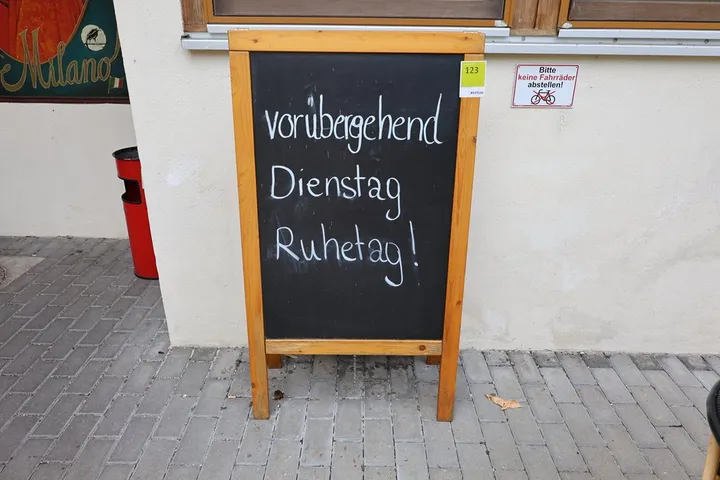 Milano
vorübergehend
Dienstag
Ruhetag!
123
Bitte
keine Fahrräder
abstellen!